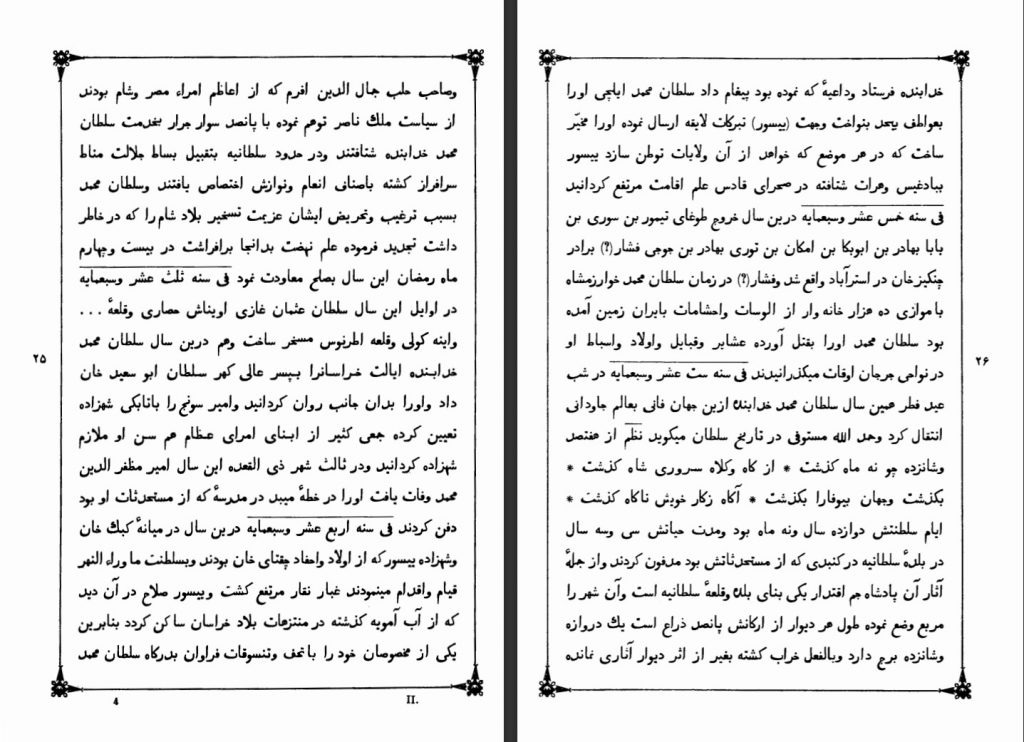 وصاحب حلب جمال الدین افرم که از اعاظم امراء مصر وشام بودند
از سیاست ملك ناصر توهم نموده با پانصد سوار جرار بخدمت سلطان
محمد خدابنده شتافتند ودر حدود سلطانیه بتقبیل بساط جلالت مناط
سرافراز کشته باصنای انعام ونوازش اختصاص یافتند وسلطان محمد
بسبب ترغیب وتحریض ایشان عزیمت تسخیر بلاد شام را که در خاطر
داشت تجدید فرموده علم نهضت بدانجا برافراشت در بیست وچهارم
ماه رمضان این سال بصلح معاودت نمود فی سنه ثلث عشر وسبعمایه
در اوایل این سال سلطان عثمان غازی اویناش حصاری وقلعهٔ ...
واینه کولی وقلعه اطرنوس مسخر ساخت وهم درین سال سلطان محمد
خدابنده ایالت خراسانرا بپسر عالی کهر سلطان ابو سعید خان
داد واورا بدان جانب روان کردانید وامیر سونج را باتابکی شهزاده
تعیین کرده جمعی کثیر از ابنای امرای عظام هم سن او ملازم
شهزاده کردانید ودر ثالث شهر ذی القعده این سال امیر مظفر الدین
محمد وفات یافت اورا در خطهٔ میبد در مدرسهٔ که از مستحدثات او بود
دفن کردند فی سنه اربع عشر وسبعمایه درین سال در میانهٔ کبك خان
وشهزاده ییسور که از اولاد واحفاد چقتای خان بودند وبسلطنت ما وراء النهر
قیام واقدام مینمودند غبار نقار مرتفع کشت وییسور صلاح در آن دید
که از آب آمویه کذشته در منتزهات بلاد خراسان ساکن کردد بنابرین
یکی از مخصوصان خود را با تحف وتنسوقات فراوان بدرکاه سلطان محمد
۲۵
4
II.
خدابنده فرستاد وداعیهٔ که نموده بود پیغام داد سلطان محمد ایلچی اورا
بعواطف بیحد بنواخت وجهت (ییسور) تبرکات لایقه ارسال نموده اورا مخیّر
ساخت که در هر موضع که خواهد از آن ولایات توطن سازد ییسور
ببادغیس وهرات شتافته در صحرای قادس علم اقامت مرتفع کردانید
فی سنه خمس عشر وسبعمایه درین سال خروج طوغای تیمور بن سوری بن
بابا بهادر بن ابوبکا بن امکان بن توری بهادر بن جوجی فشار(؟) برادر
چنکیز خان در استرآباد واقع شد وفشار(؟) در زمان سلطان محمد خوارزمشاه
با موازی ده هزار خانه وار از الوسات واحشامات بایران زمین آمده
بود سلطان محمد اورا بقتل آورده عشایر وقبایل واولاد واسباط او
در نواحی جرجان اوقات میکذرانیدند فی سنه ست عشر وسبعمایه در شب
عید فطر همین سال سلطان محمد خدابنده ازین جهان فانی بعالم جاودانی
انتقال کرد وحمد الله مستوفی در تاریخ سلطان میکوید نظم از هفتصد
وشانزده چو نه ماه کذشت * از کاه وکلاه سروری شاه کذشت *
بکذشت وجهان بیوفارا بکذشت * آکاه زکار خویش ناکاه کذشت *
ایام سلطنتش دوازده سال ونه ماه بود ومدت حیاتش سی وسه سال
در بلدهٔ سلطانیه در کنبدی که از مستحدثاتش بود مدفون کردند واز جملهٔ
آثار آن پادشاه جم اقتدار یکی بنای بلده وقلعهٔ سلطانیه است وآن شهر را
مربع وضع نموده طول هر دیوار از ارکانش پانصد ذراع است یك دروازه
وشانزده برج دارد وبالفعل خراب کشته بغیر از اثر دیوار آثاری نمانده
۲۶